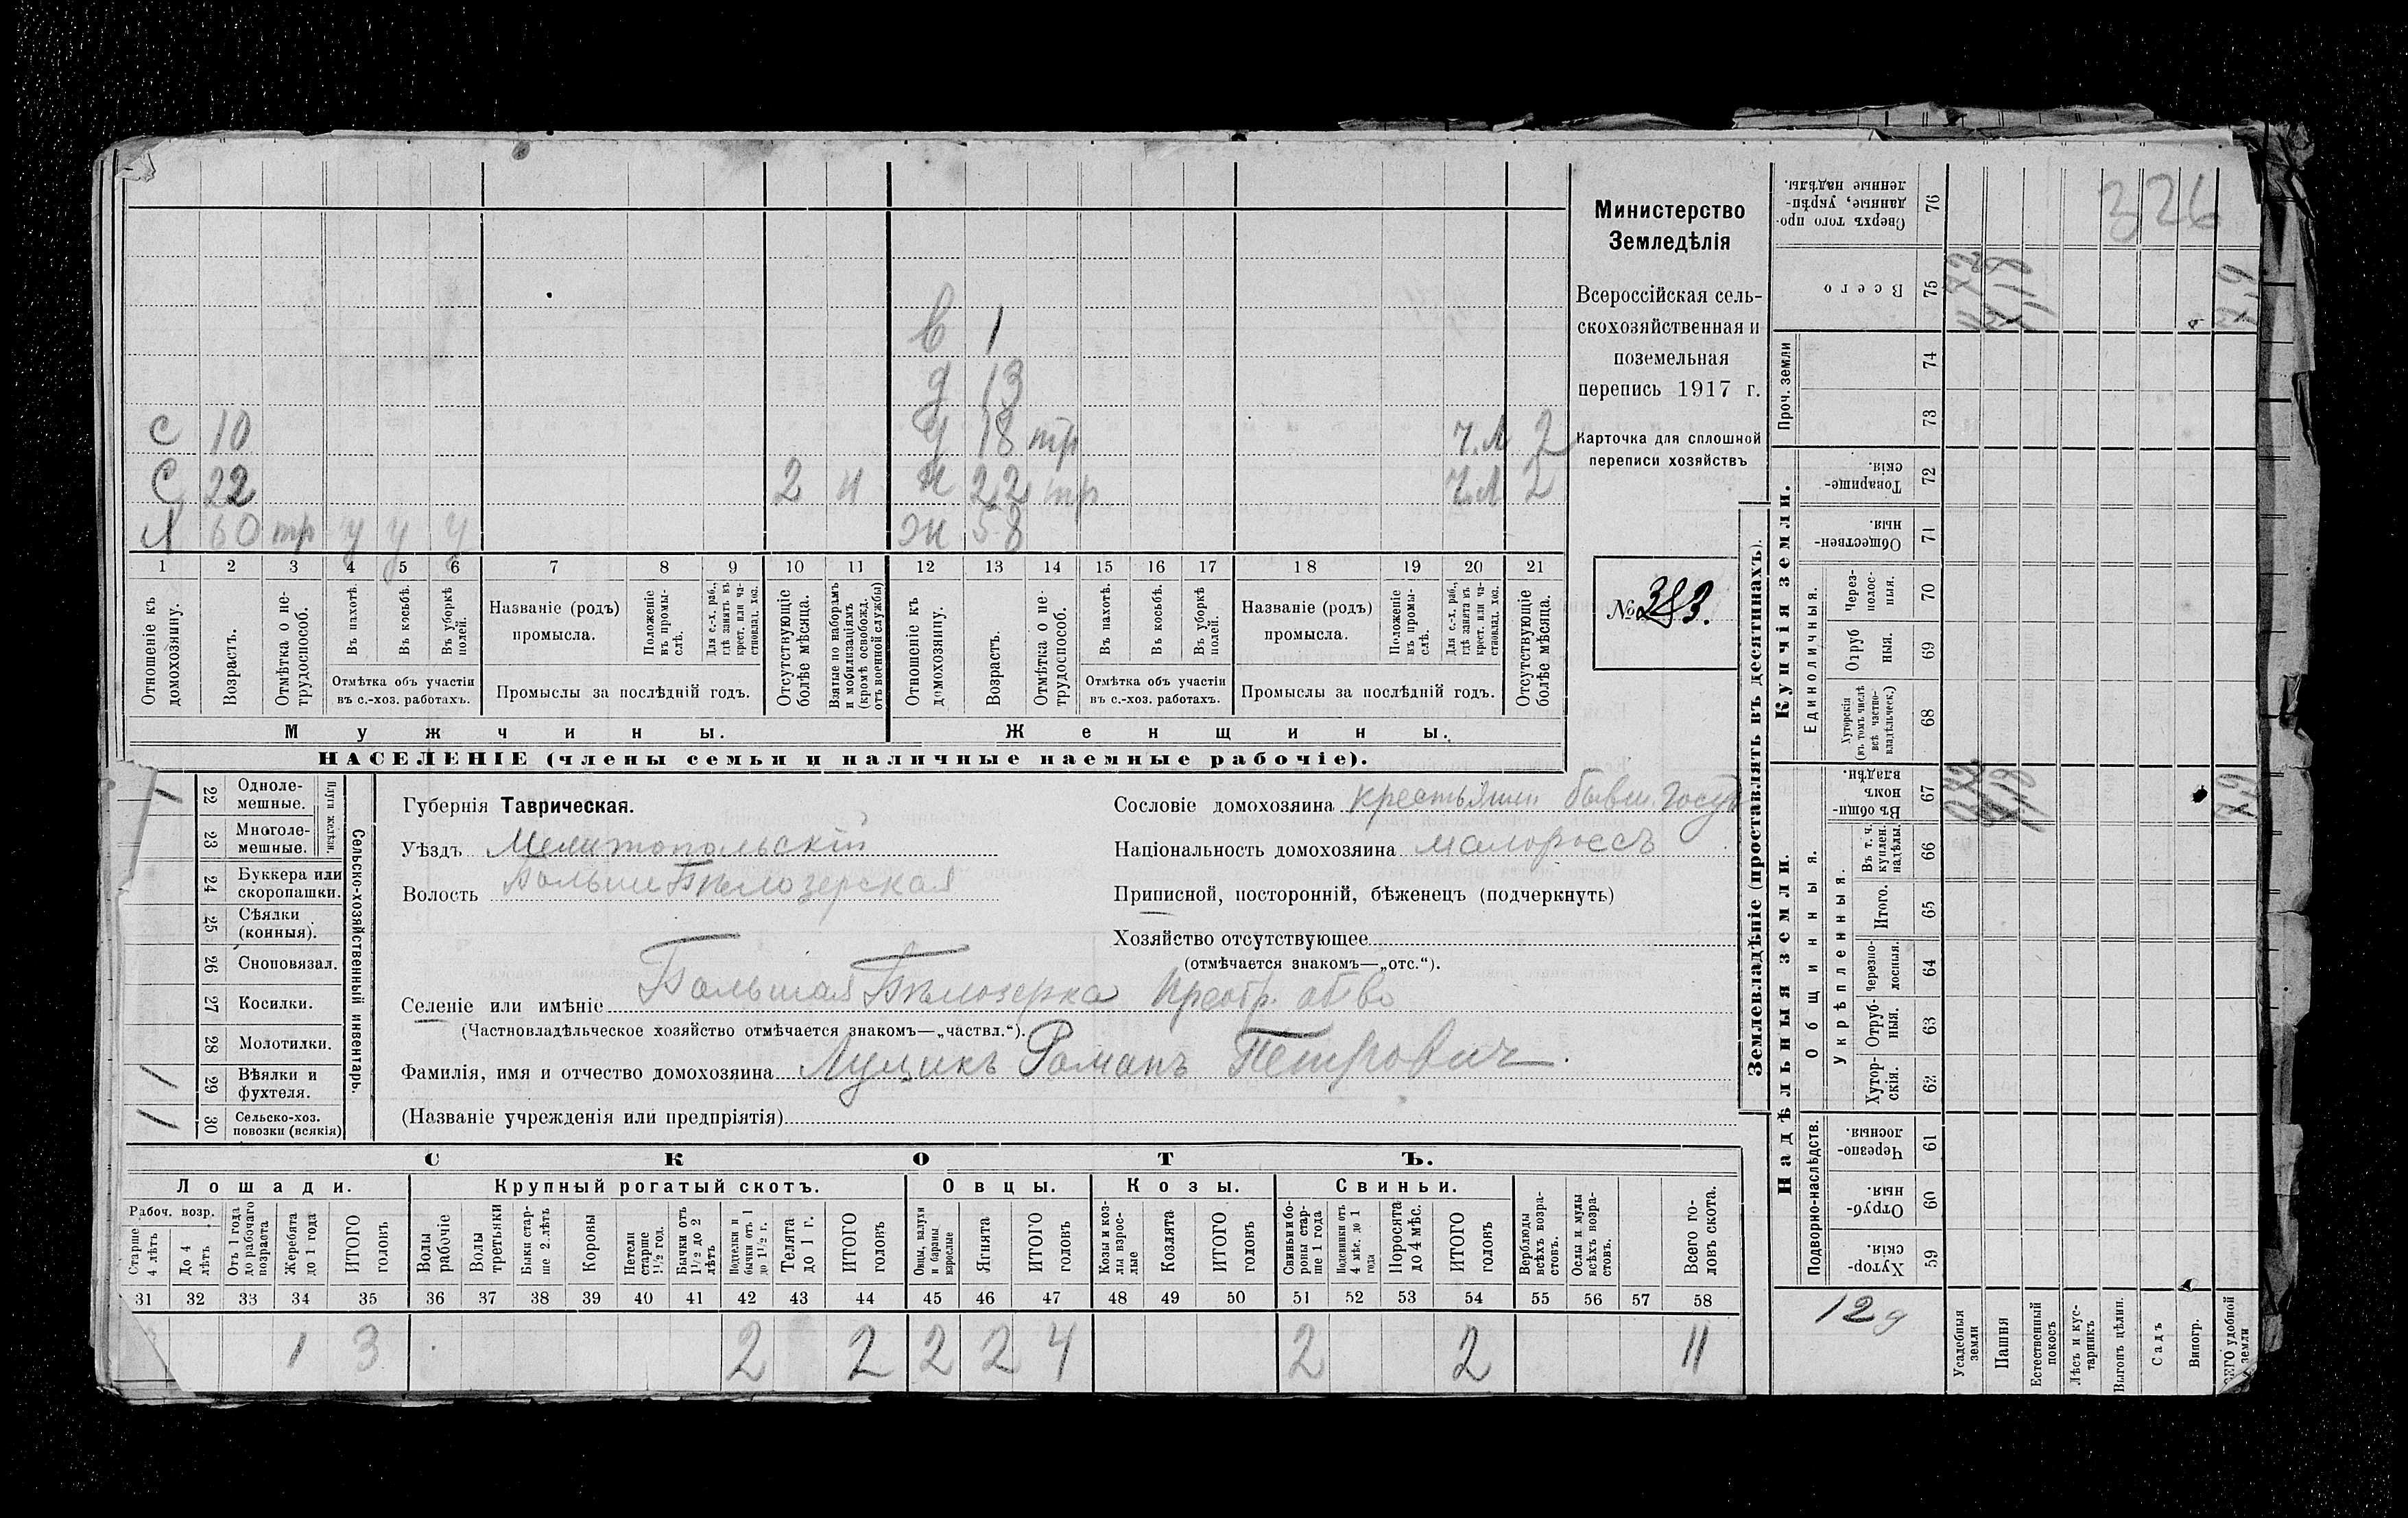 326
Министерство
Земледѣлія
Всероссійская сель-
скохозяйственная и
поземельная
перепись 1917 г.
Карточка для сплошной
переписи хозяйствъ
№ 383.
в 1
д 13
с 10 д 18 тр ч.л 2
с 22 2 н н 22 тр ч.л 2
60 тр у у у ж 58
1 2 3 4 5 6 7 8 9 10 11 12 13 14 15 16 17 18 19 20 21
Отношеніе къ домохозяину.
Возрастъ.
Отмѣтка о не-трудоспособ.
Въ пахотѣ.
Въ косьбѣ.
Въ уборкѣ полей.
Отмѣтка объ участіи
въ с.-хоз. работахъ.
Названіе (родъ)
промысла.
Положеніе въ промы-слѣ.
Для с.-х. раб., гдѣ занятъ въ крест. или ча-стновлад. хоз.
Промыслы за послѣдній годъ.
Отсутствующіе болѣе мѣсяца.
Взятые по наборамъ и мобилизаціямъ (кромѣ освобожд. отъ военной службы)
Отношеніе къ домохозяину.
Возрастъ.
Отмѣтка о не-трудоспособ.
Въ пахотѣ.
Въ косьбѣ.
Въ уборкѣ полей.
Отмѣтка объ участіи
въ с.-хоз. работахъ.
Названіе (родъ)
промысла.
Положеніе въ промы-слѣ.
Для с.-х. раб., гдѣ занята въ крест. или ча-стновлад. хоз.
Промыслы за послѣдній годъ.
Отсутствующіе болѣе мѣсяца.
Мужчины. Женщины.
НАСЕЛЕНІЕ (члены семьи и наличные наемные рабочіе).
Сельско-хозяйственный инвентарь.
Плуги желѣзн.
1 22 Одноле-мешные.
23 Многоле-мешные.
24 Буккера или скоропашки.
25 Сѣялки (конныя).
26 Сноповязал.
27 Косилки.
28 Молотилки.
1 29 Вѣялки и фухтеля.
1 30 Сельско-хоз. повозки (всякія)
Губернія Таврическая.
Уѣздъ Мелитопольскій
Волость Больше Бѣлозерская
Сословіе домохозяина крестьянин бывш. госуд
Національность домохозяина малороссъ
Приписной, посторонній, бѣженецъ (подчеркнуть)
Хозяйство отсутствующее
(отмѣчается знакомъ—„отс.“).
Селеніе или имѣніе Большая Бѣлозерка Преобр. об-во
(Частновладѣльческое хозяйство отмѣчается знакомъ—„частвл.“).
Фамилія, имя и отчество домохозяина Лущикъ Романъ Петрович.
(Названіе учрежденія или предпріятія)
СКОТЪ.
Лошади. Крупный рогатый скотъ. Овцы. Козы. Свиньи.
Рабоч. возр.
Старше 4 лѣтъ
До 4 лѣтъ
Отъ 1 года до рабочаго возраста
Жеребята до 1 года
ИТОГО головъ
Волы рабочіе
Волы третьяки
Быки стар-ше 2 лѣтъ
Коровы
Нетели старше 1½ год.
Бычки отъ 1½ до 2 лѣтъ
Подтелки и бычки отъ 1 до 1½ г.
Телята до 1 г.
ИТОГО головъ
Овцы, валухи и бараны взрослые
Ягнята
ИТОГО головъ
Козы и коз-лы взрос-лые
Козлята
ИТОГО головъ
Свиньи и бо-ровы стар-ше 1 года
Подсвинки отъ 4 мѣс. до 1 года
Поросята до 4 мѣс.
ИТОГО головъ
Верблюды всѣхъ возра-стовъ.
Ослы и мулы всѣхъ возра-стовъ.
Всего го-ловъ скота.
31 32 33 34 35 36 37 38 39 40 41 42 43 44 45 46 47 48 49 50 51 52 53 54 55 56 57 58
1 3 2 2 2 2 4 2 2 11
Землевладѣніе (проставлять въ десятинахъ).
Сверхъ того про-данные, укрѣп-ленные надѣлы. 76
Всего 75
Проч. земли 74
73
Купчія земли.
Товарище-скія. 72
Обществен-ныя. 71
Единоличныя.
Через-полос-ныя. 70
Отруб-ныя. 69
Хуторскія (въ томъ числѣ всѣ частно-владѣльческ.) 68
Надѣльныя земли.
Общинныя.
Въ общи-номъ владѣн. 67
Въ т. ч. куплен. надѣлы. 66
Укрѣпленныя.
Итого. 65
Черезпо-лосныя. 64
Отруб-ныя. 63
Хутор-скія. 62
Подворно-наслѣдств.
Черезпо-лосныя. 61
Отруб-ныя. 60
Хутор-скія. 59
12 д
Усадебныя земли
Пашня
Естественный покосъ
Лѣсъ и кус-тарникъ
Выгонъ цѣлин.
Садъ
Виногр.
ВСЕГО удобной земли